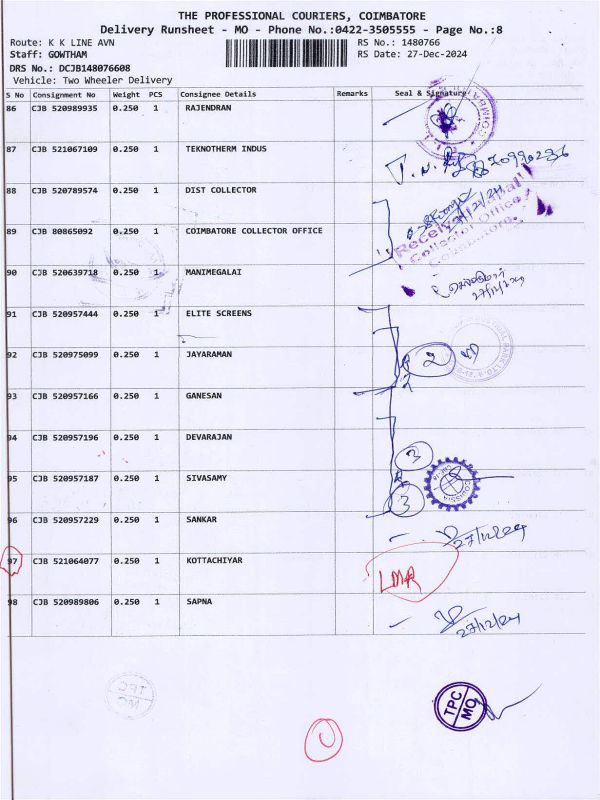 THE PROFESSIONAL COURIERS, COIMBATORE
Delivery Runsheet - MO - Phone No.:0422-3505555 - Page No.:8
Route: K K LINE AVN
RS No.: 1480766
Staff: GOWTHAM
RS Date: 27-Dec-2024
DRS No.: DCJB148076608
Vehicle: Two Wheeler Delivery
S No Consignment No Weight PCS Consignee Details Remarks Seal & Signature
86 CJB 520989935 0.250 1 RAJENDRAN
87 CJB 521067109 0.250 1 TEKNOTHERM INDUS
88 CJB 520789574 0.250 1 DIST COLLECTOR
89 CJB 80865092 0.250 1 COIMBATORE COLLECTOR OFFICE
Collector Office
Coimbatore.
90 CJB 520639718 0.250 1 MANIMEGALAI
27/12/2024
91 CJB 520957444 0.250 1 ELITE SCREENS
92 CJB 520975099 0.250 1 JAYARAMAN
2
93 CJB 520957166 0.250 1 GANESAN
94 CJB 520957196 0.250 1 DEVARAJAN
3
95 CJB 520957187 0.250 1 SIVASAMY
3
96 CJB 520957229 0.250 1 SANKAR
27/12/2024
97 CJB 521064077 0.250 1 KOTTACHIYAR
LMR
98 CJB 520989806 0.250 1 SAPNA
27/12/24
TPC
MO
TPC
MO